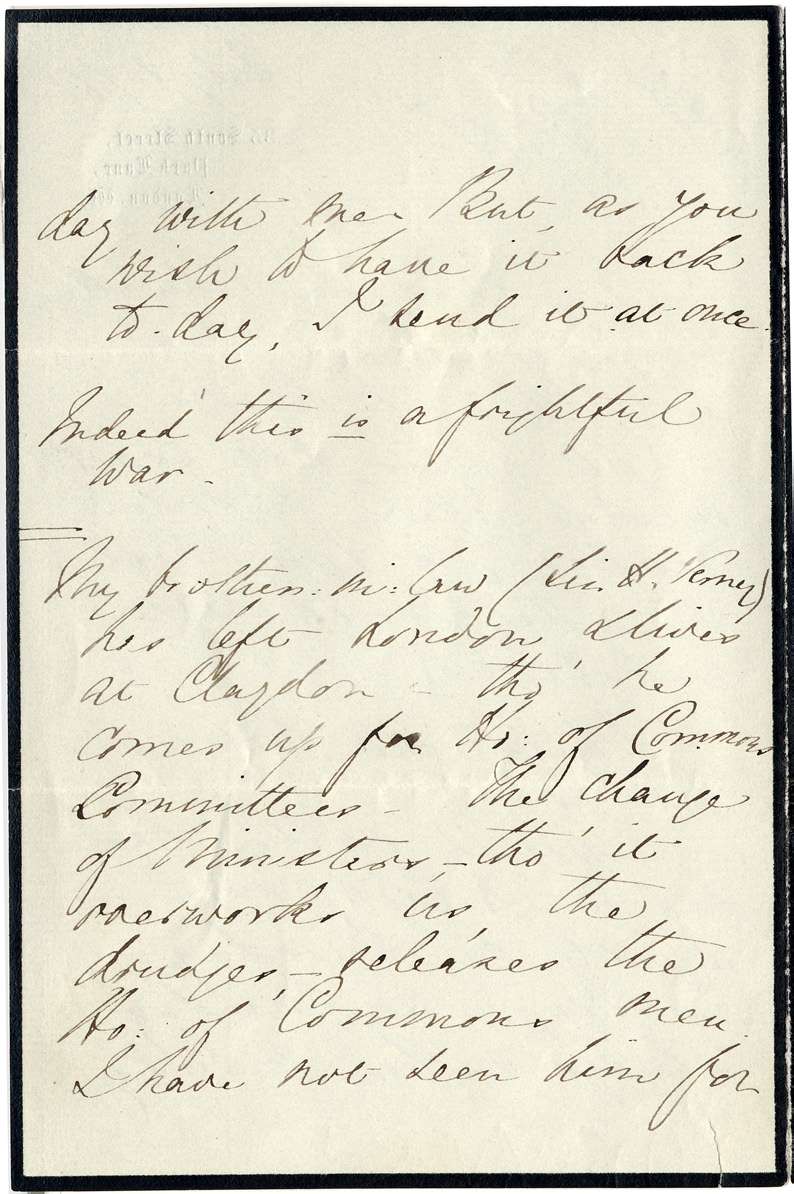 day with me. But, as you
wish to have it back
to-day, I send it at once.
Indeed this is a frightful
war -
My brother: in: law (Sir H. Verney)
has left London & lives
at Claydon - tho' he
comes up for Ho: of Commons
Committees - The change
of Ministers, - tho' it
overworks us, the
drudges, - releases the
Ho: of Commons men.
I have not seen him for